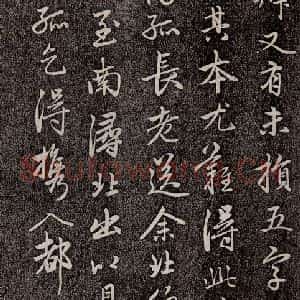 又有未損五字
其本尤難得此
孤長老送余北
至南潯北出以見
孤乞得攜入都